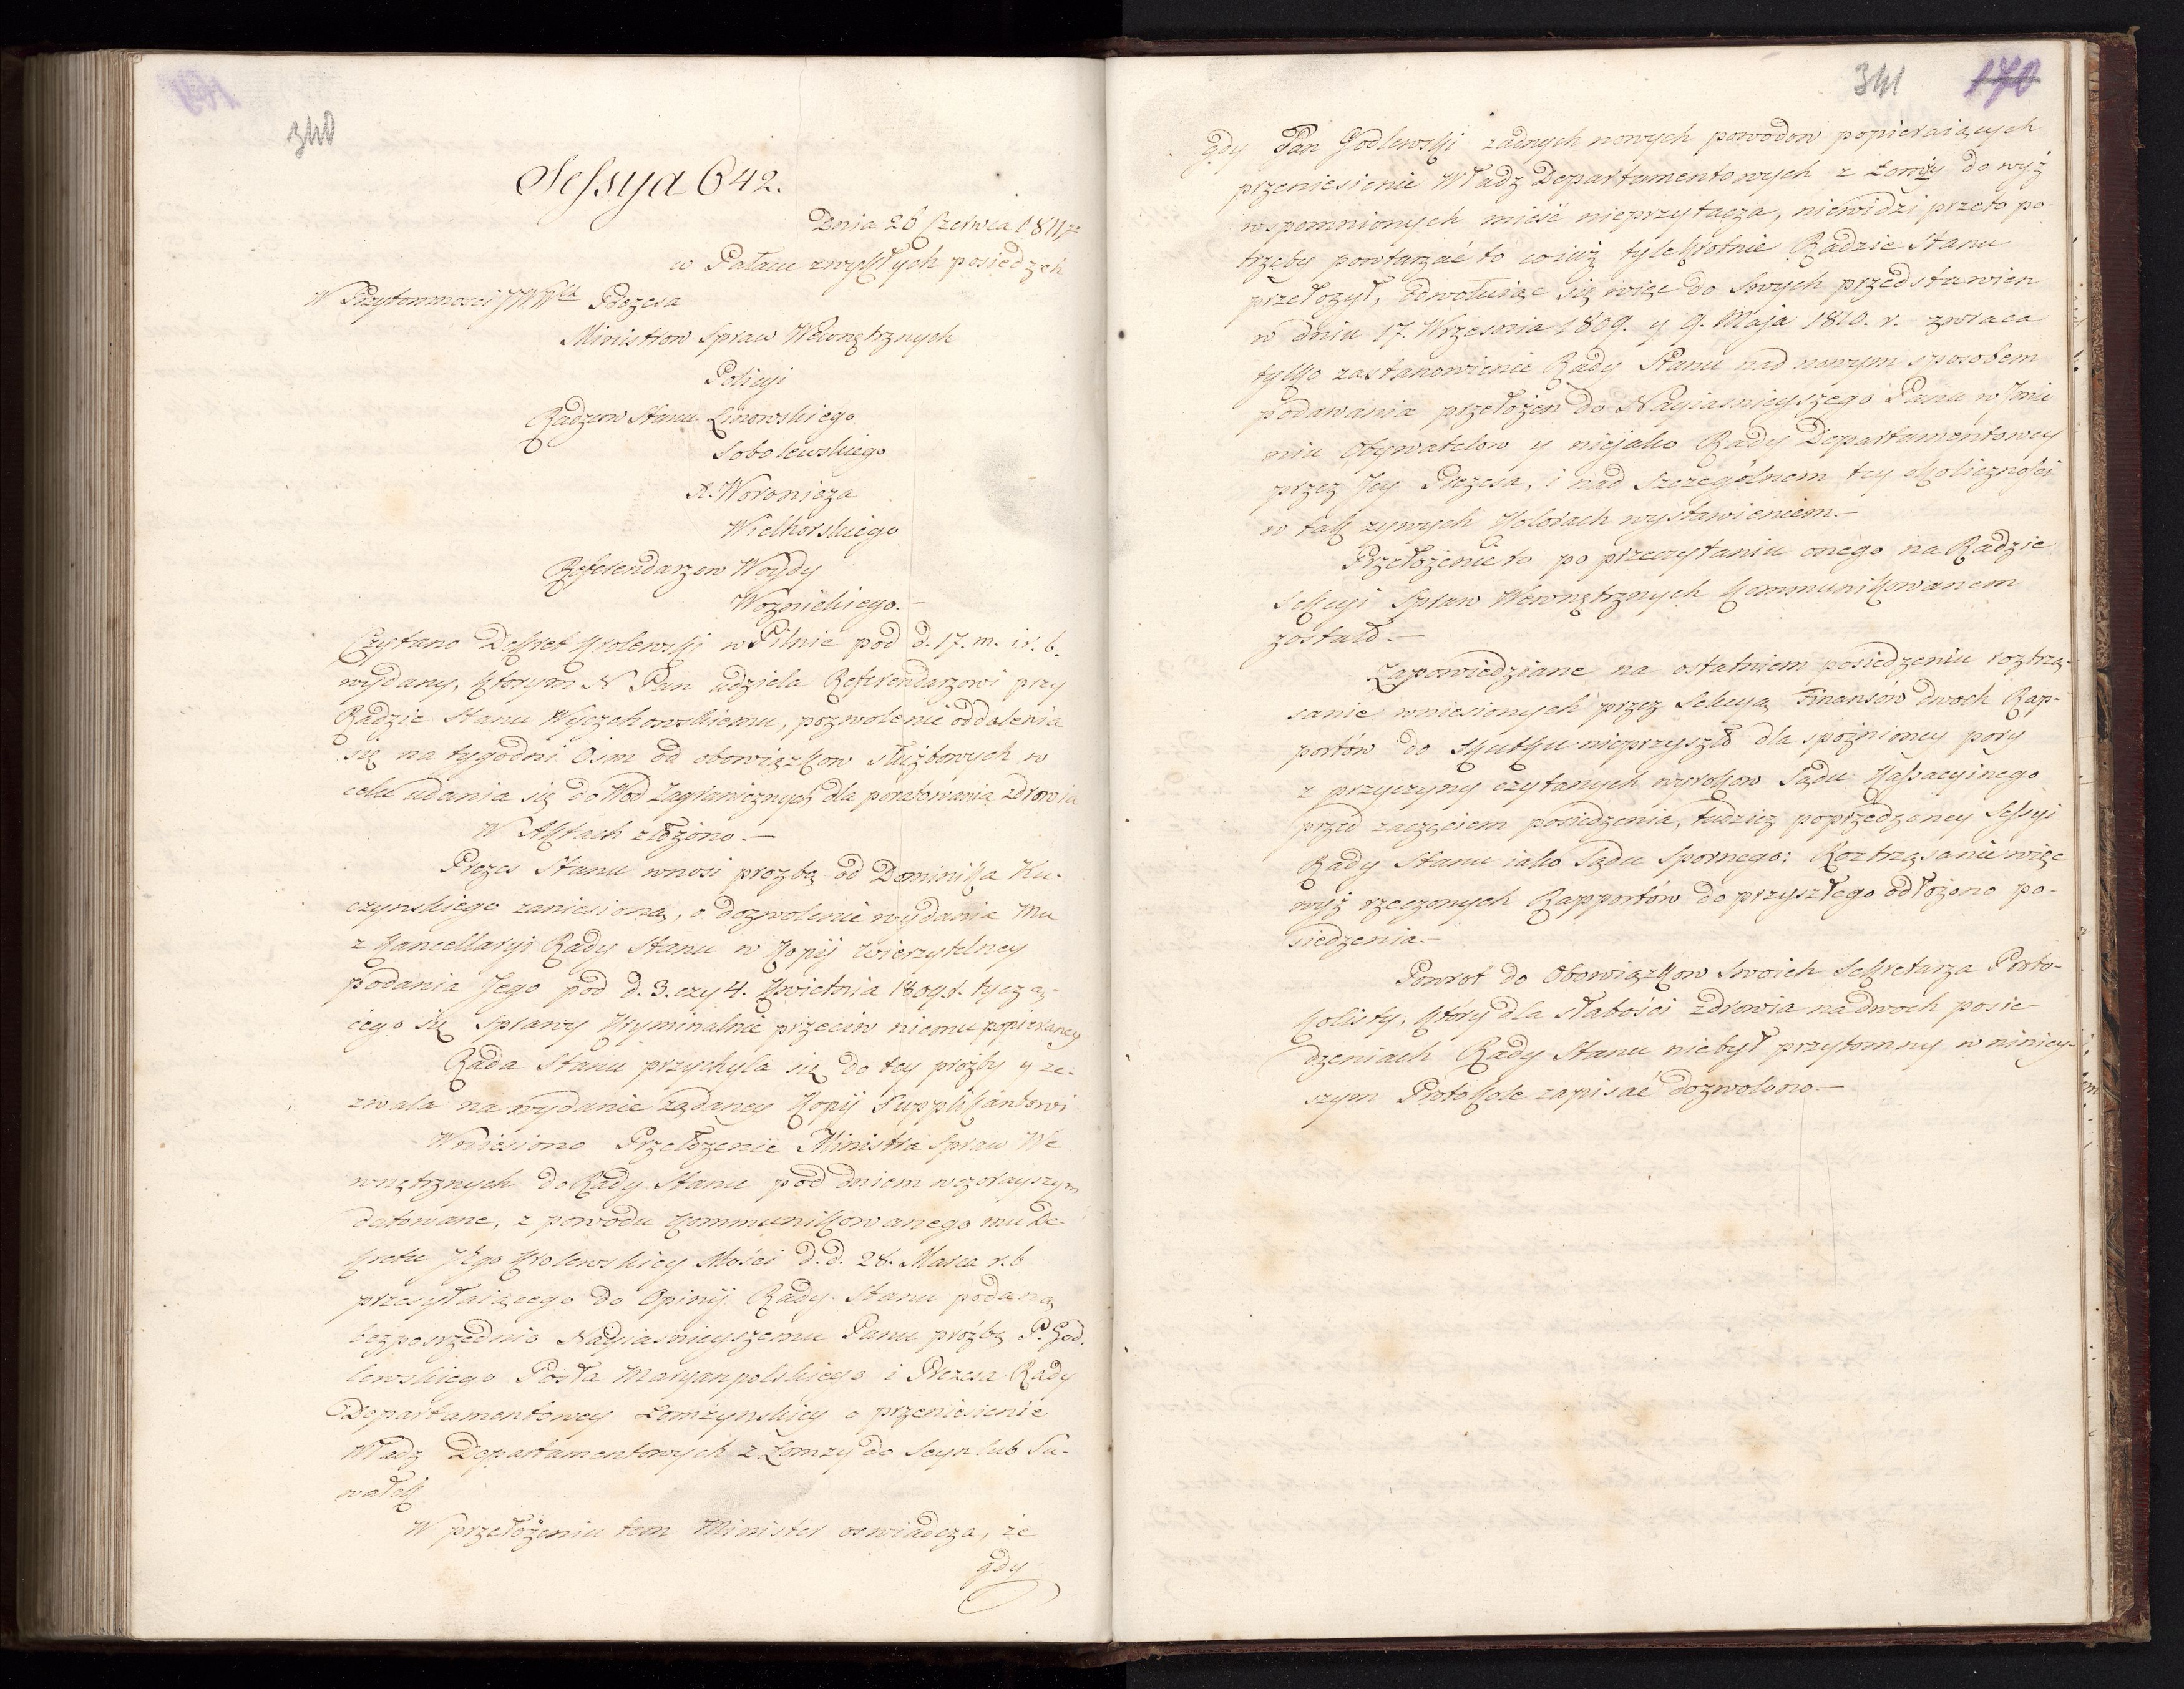 340
Sessya 642.
Dnia 26 Czerwca 1811 r.
w Pałacu zwykłych posiedzeń
W Przytomnosci JWW Prezesa
Ministrow Spraw Wewnętrznych
Policyi
Radzcow Stanu Linowskiego
Sobolewskiego
X. Woronicza
Wielhorskiego
Referendarzow Woydy
Woznickiego.-
Czytano Dekret Krolewski w Pilnic pod d. 17. m. i r. b.
wydany, ktorym N Pan udziela Referendarzowi przy
Radzie Stanu Wyczechowskiemu, pozwolenie oddalenia
się na tygodni Ośm od obowiązkow służbowych w
celu udania się do Wod Zagranicznych dla poratowania zdrowia
W Aktach złożono.-
Prezes Stanu wnosi prozbę od Dominika Ku-
czynskiego zaniesioną, o dozwolenie wydania Mu
z Kancellaryi Rady Stanu w Kopij wierzytelney
podania Jego pod d. 3. czy 4. Kwietnia 1809. r. tycząc-
cego się Sprawy Kryminalnie przeciw niemu popieraney
Rada Stanu przychyla się do tey proźby y ze-
zwala na wydanie żądaney Kopij Supplikantowi
Wniesiono Przełożenie Ministra Spraw We
wnętrznych do Rady Stanu pod dniem wczorayszym
datowane, z powodu kommunikowanego mu De-
kretu JKgo Krolewskiey Mości d. d. 28. Marca r. b
przesyłaiącego do Opinij Rady Stanu podaną
bezposrzednio Nayiasnieyszemu Panu proźbę P. God.
lewskiego Posła Maryanpolskiego i Prezesa Rady
Departamentowey Łomżynskiey o przeniesienie
Władz Departamentowych z Łomzy do Seyn lub Su-
wałk
W przełożeniu tem Minister oswiadcza, że
gdy
341 170
gdy Pan Godlewski żadnych nowych powodow popieraiących
przeniesienie Władz Departamentowych z Łomży do wyż
wspomnionych mieść nieprzytacza, niewidzi przeto po-
trzeby powtarzać to co iuż tylekrotnie Radzie Stanu
przełożył, odwołuiąc się więc do Swych przedstawien
w dniu 17. Wrzesnia 1809. y 9. Maja 1810. r. zwraca
tylko zastanowienie Rady Stanu nad nowym sposobem
podawania przełożeń do Nayiasnieyszego Pana w Imie
niu Obywatelow y niejako Rady Departamentowey
przez Jey Prezesa, i nad szczegolnem tey okoliczności
w tak żywych Kolorach wystawieniem.-
Przełożenie to po przeczytaniu onego na Radzie
Sekcyi Spraw Wewnętrznych kommunikowanem
zostało.-
Zapowiedziane na ostatniem posiedzeniu roztrzą-
sanie wniesionych przez Sekcyą Finansów dwoch Rap-
portów do skutku nieprzyszło dla spoźnioney pory
z przyczyny czytanych wyrokow Sądu Kassacyinego
przed zaczęciem posiedzenia, tudzież poprzedzoney Sessyi
Rady Stanu iako Sądu Spornego: Roztrząsanie więc
wyż rzeczonych Rapportów do przyszłego odłożono po-
siedzenia.-
Powrot do Obowiązkow Swoich Sekretarza Proto-
kolisty, który dla słabości zdrowia na dwoch posie-
dzeniach Rady Stanu niebył przytomny w niniey-
szym Protokole zapisać dozwolono.-